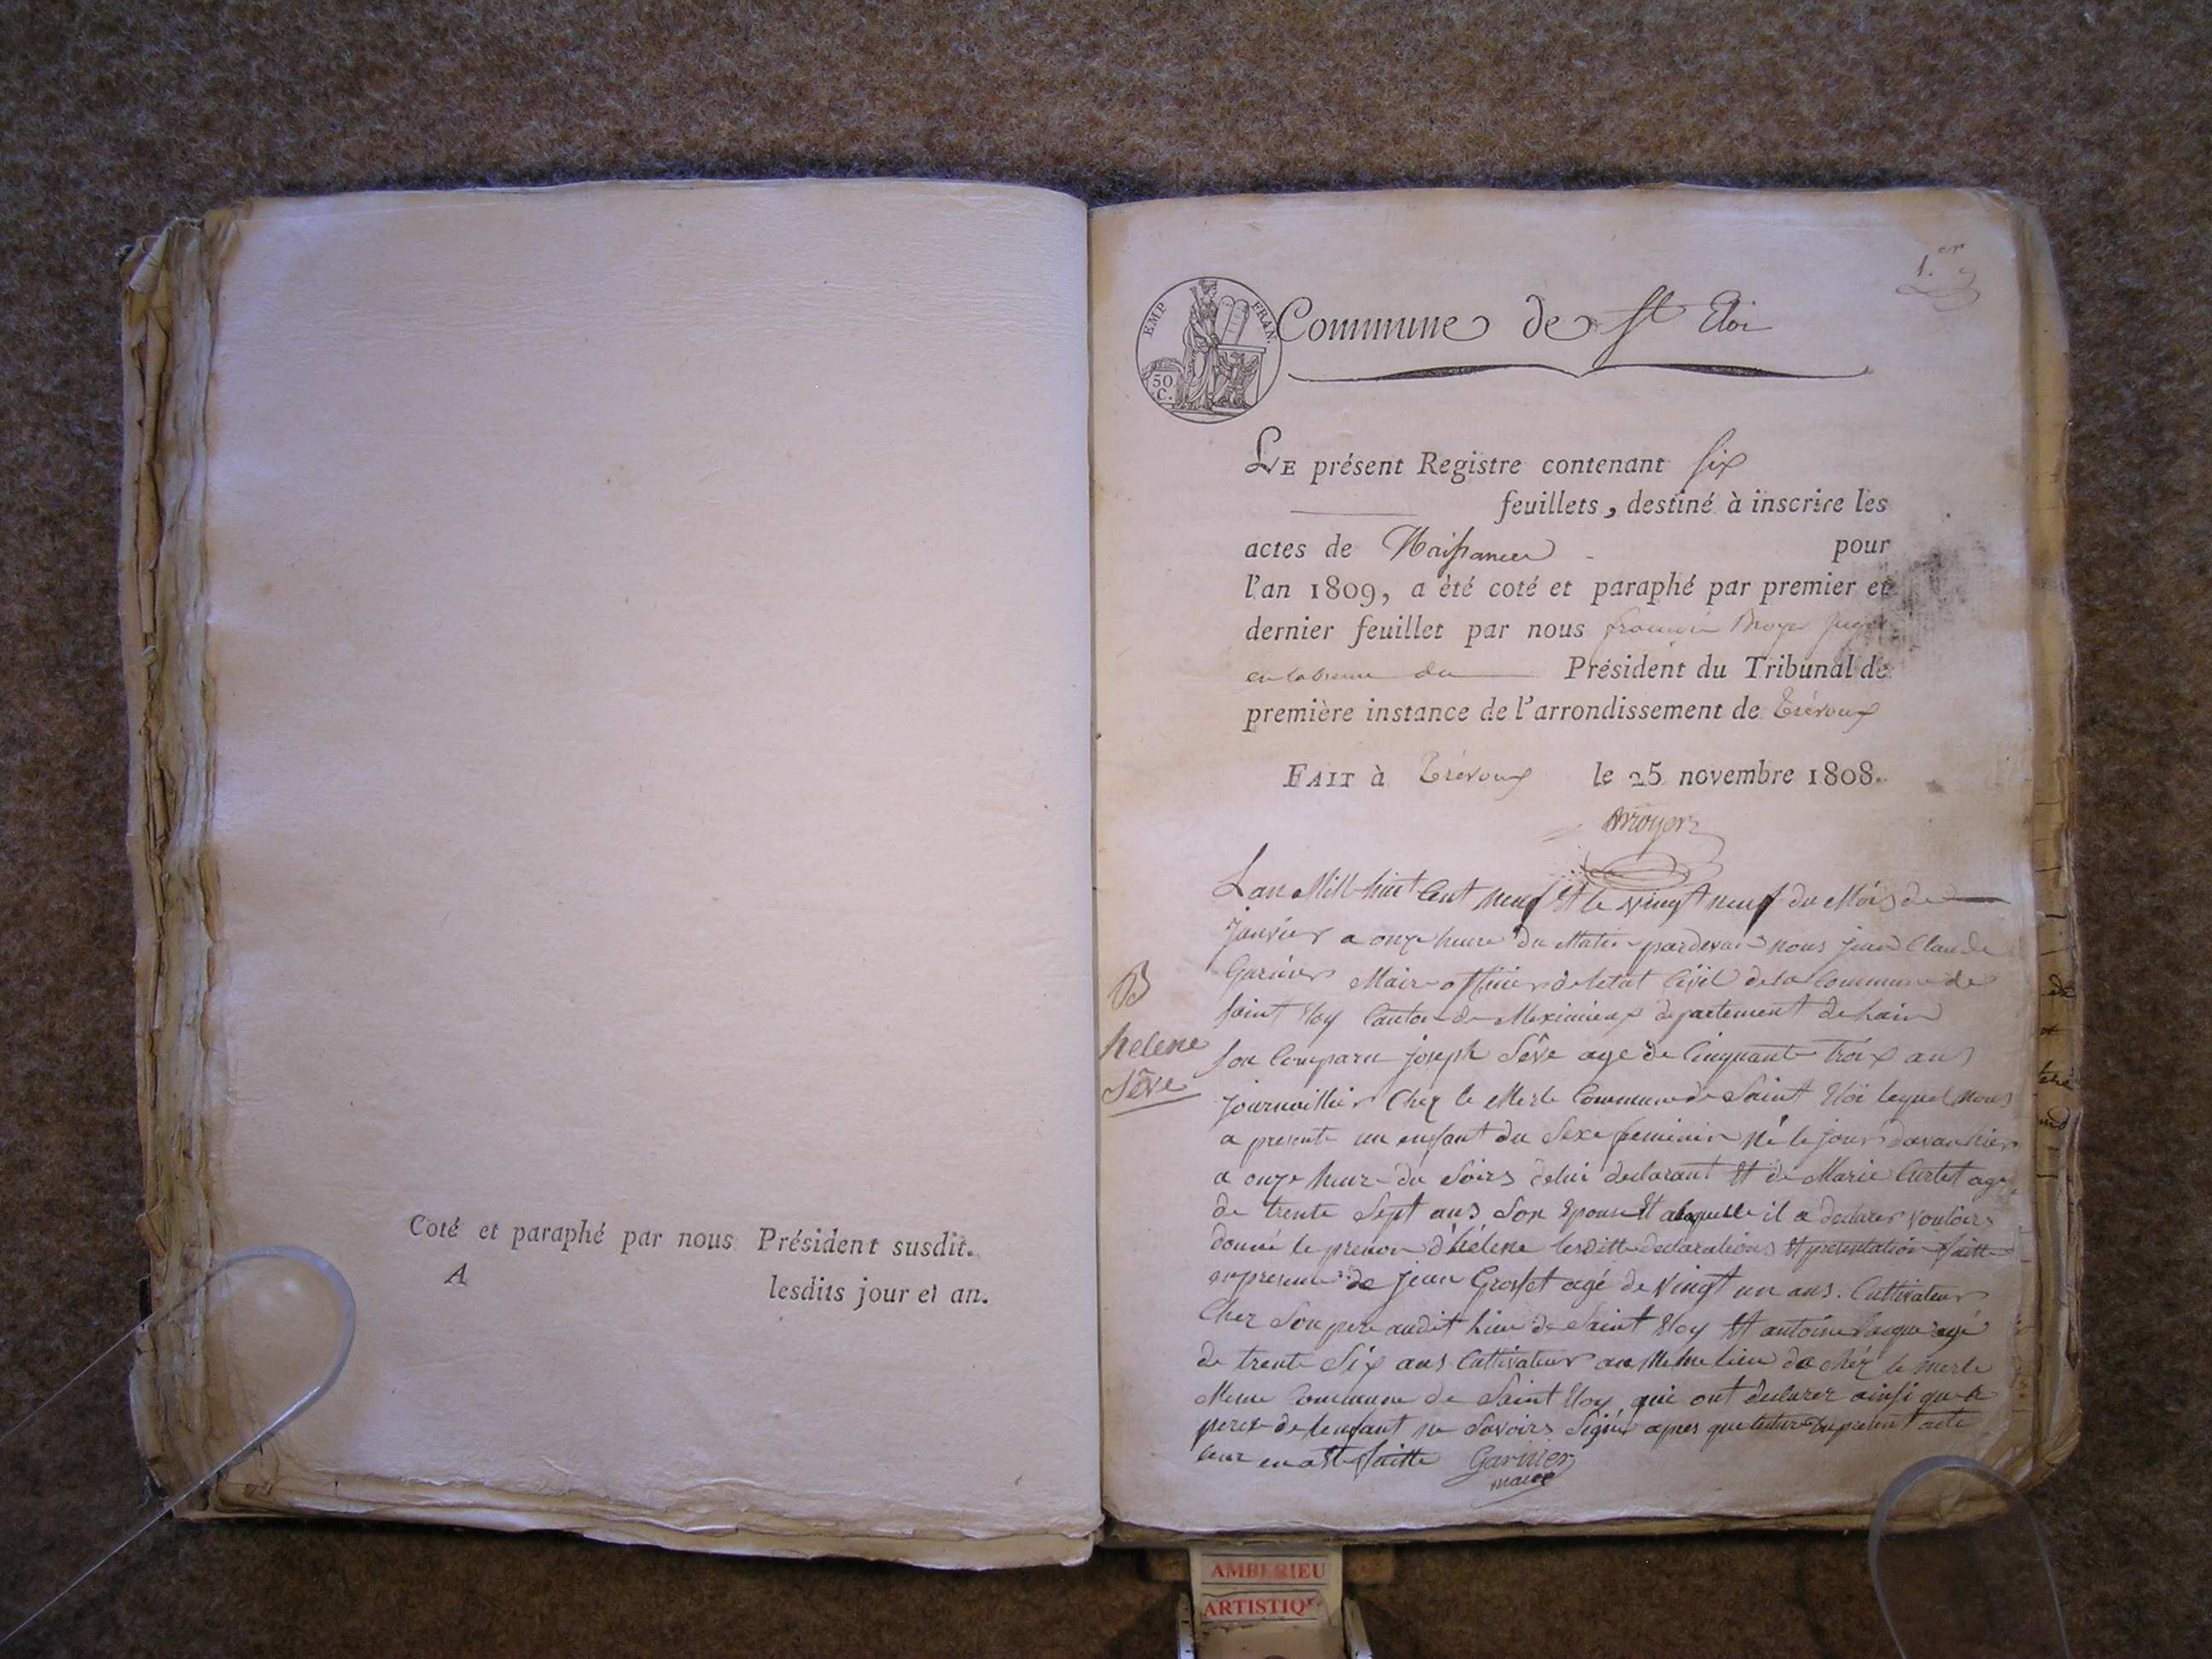 Coté et paraphé par nous Président susdit.
A lesdits jour et an.
1.er
EMP. FRAN.
50 C.
Commune de St Eloi
LE présent Registre contenant six
feuillets, destiné à inscrire les
actes de Naissances pour
l'an 1809, a été coté et paraphé par premier et
dernier feuillet par nous françois Broyer Juge
en labsence du Président du Tribunal de
première instance de l'arrondissement de Trévoux
FAIT à Trévoux le 25 novembre 1808.
Broyer
Lan Mill huit Cent neuf Et le vingt neuf du Mois de
Janvier a onze heure du Matin pardevant nous jean Claude
Garnier Maire officier de letat Civil de la Commune de
saint Eloy Canton de Meximieux departement de hain
B
helene
Sêve
son Comparu joseph Sêve age de Cinquante trois ans
journaillier Chez le Merle Commune de Saint Eloi lequel nous
a presenté un enfant du Sexe feminin né le jour davanhier
a onze heure du Soirs de lui declarant Et de Marie Curtet age
de trente Sept ans Son Epouse Et a laquelle il a declarer vouloirs
donné le prenom d'hélene lesditte declarations Et presentation faitte
en presence de jean Grosset agé de vingt un ans. Cultivateur
Chez Son pere audit lieu de Saint Eloy Et antoine agé
de trente Six ans Cultivateur au Meme lieu de chéz le merle
Meme Commune de Saint Eloy qui ont declarer ainsi que le
peres de lenfant ne Savoirs Signé apres que lecture Du présent acte
leur en a Eté faitte Garnier
maire
AMBERIEU
ARTISTIQ